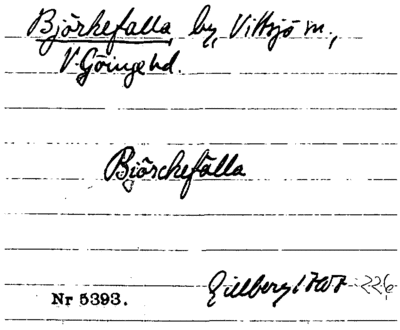 Björkefalla by, Vittsjö sn,
V. Göinge hd.
Biörchefälla
Gillberg 1767 226
Nr 5393.